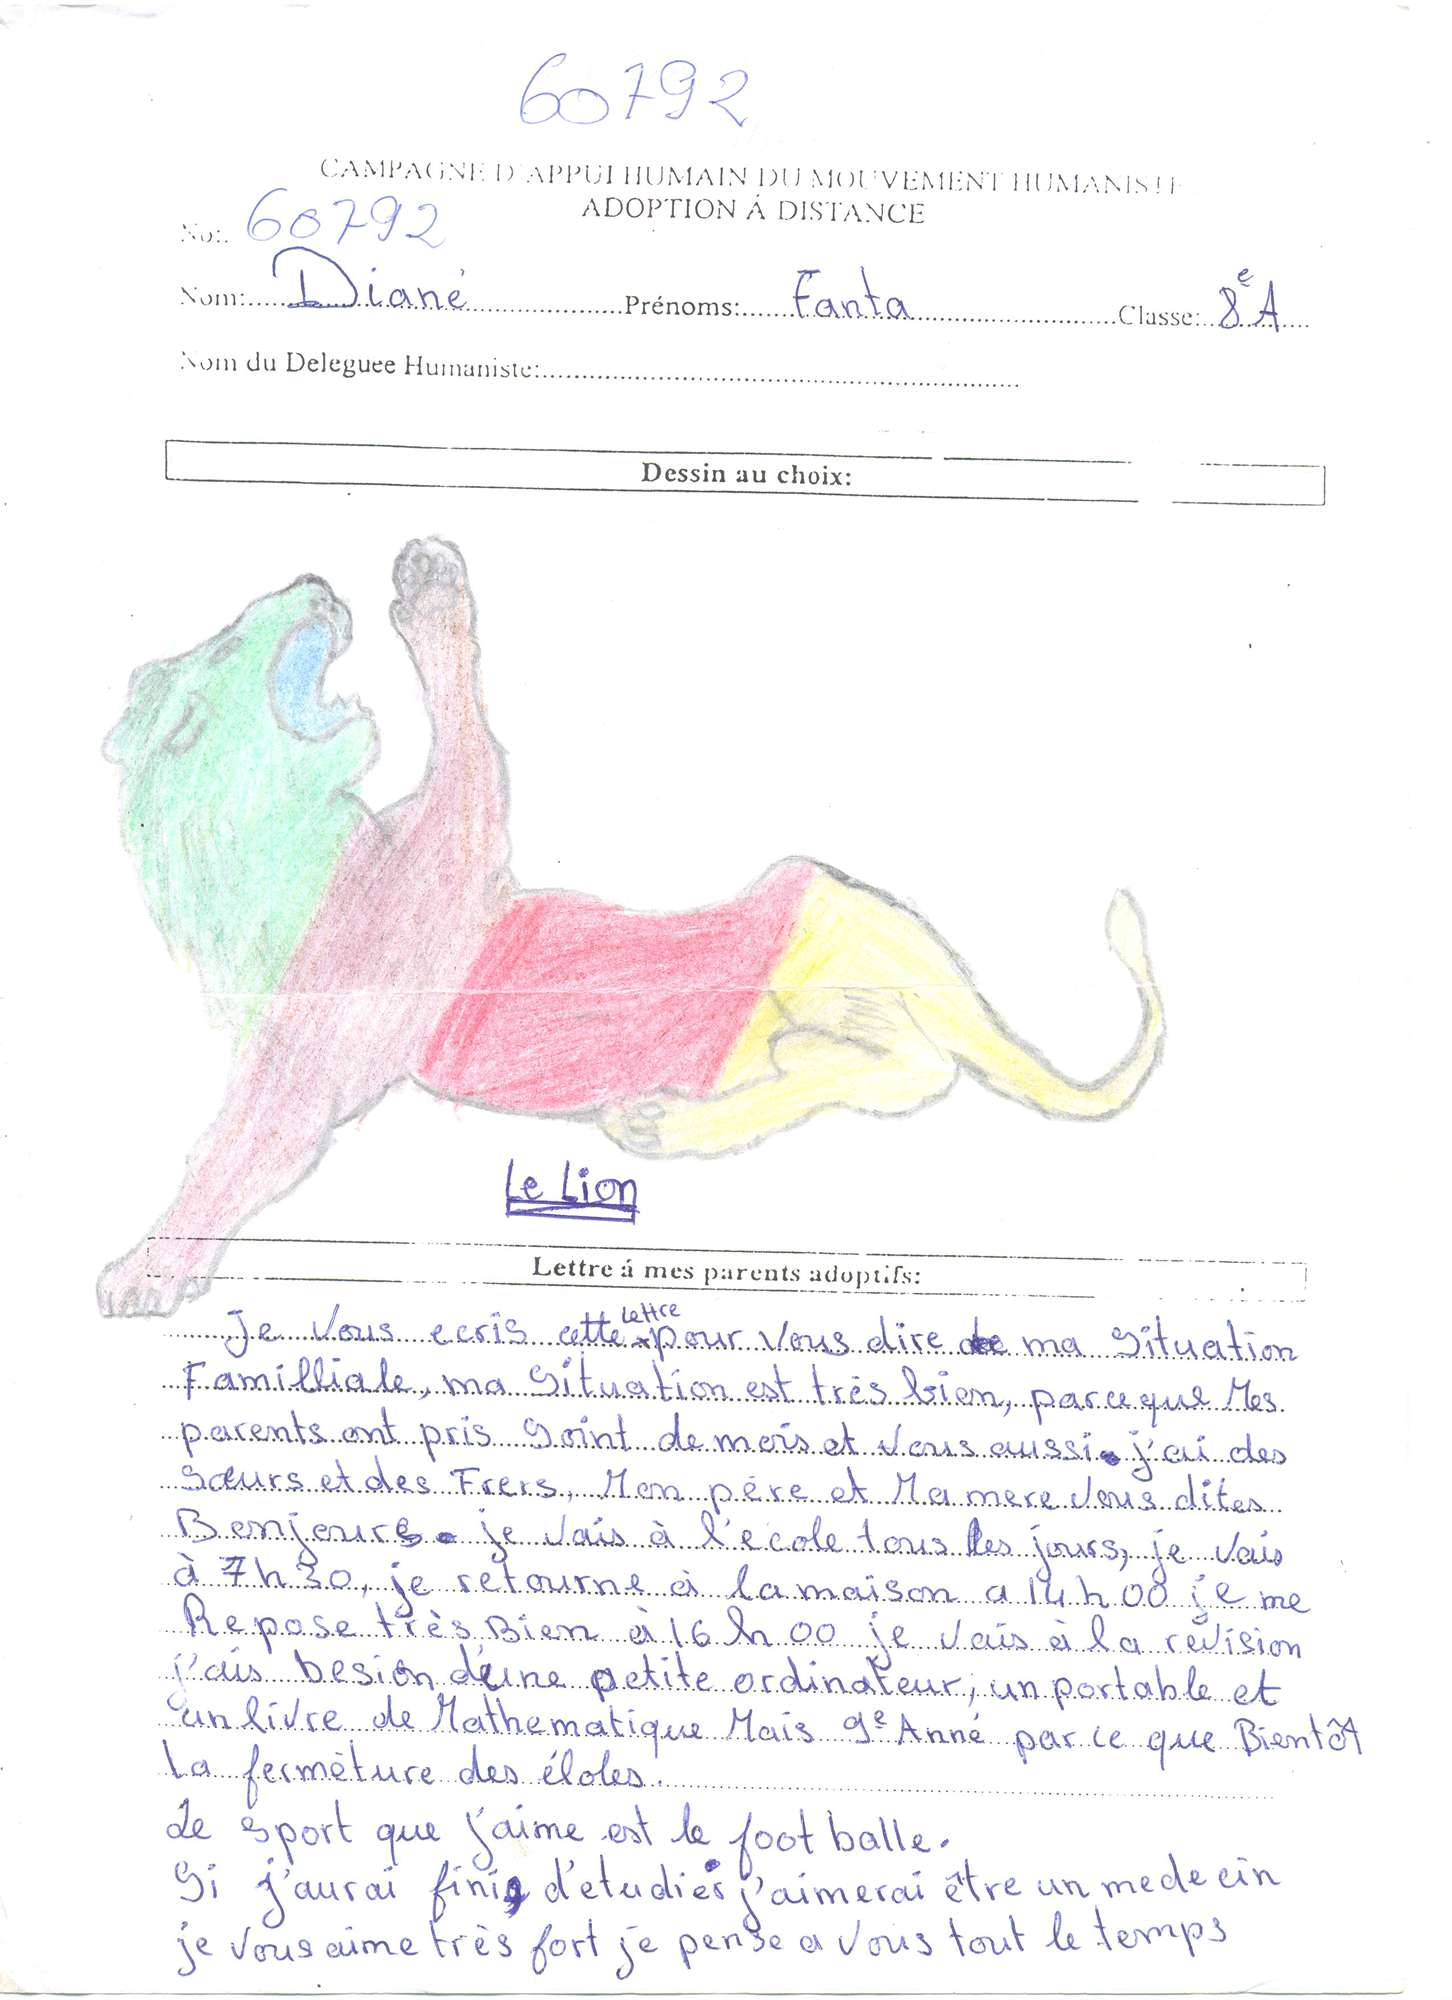 60792
CAMPAGNE D'APPUI HUMAIN DU MOUVEMENT HUMANISTE
ADOPTION Á DISTANCE
No: 60792
Nom: Diané Prénoms: Fanta Classe: 8e A
Nom du Deleguee Humaniste:
Dessin au choix:
Le Lion
Lettre á mes parents adoptifs:
Je vous ecris cette lettre pour vous dire de ma Situation
Familliale, ma Situation est très bien, parce que Mes
parents ont pris Soint de mois et vous aussi. j'ai des
Sœurs et des Frers, Mon père et Ma mere vous dites
Bonjours. je vais à l'école tous les jours, je vais
à 7h30, je retourne à la maison a 14h00 je me
Repose très Bien à 16h00 je vais à la révision
j'ais besion d'une petite ordinateur, un portable et
un livre de Mathematique Mais 9e Anné par ce que Bientôt
la fermèture des éloles.
Le sport que j'aime est le foot balle.
Si j'aurai fini, d'etudier j'aimerai être un medecin
je vous aime très fort je pense a vous tout le temps